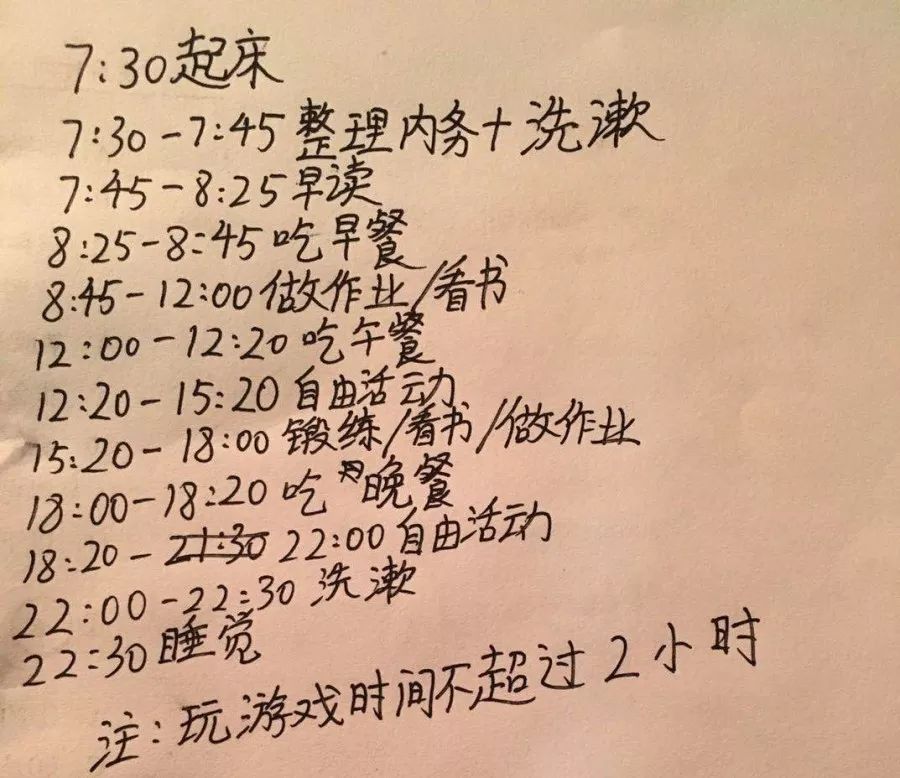 7:30起床
7:30-7:45 整理内务+洗漱
7:45-8:25早读
8:25-8:45吃早餐
8:45-12:00做作业/看书
12:00-12:20吃午餐
12:20-15:20自由活动
15:20-18:00锻练/看书/做作业
18:00-18:20吃晚餐
18:20-21:30 22:00自由活动
22:00-22:30洗漱
22:30睡觉
注:玩游戏时间不超过2小时